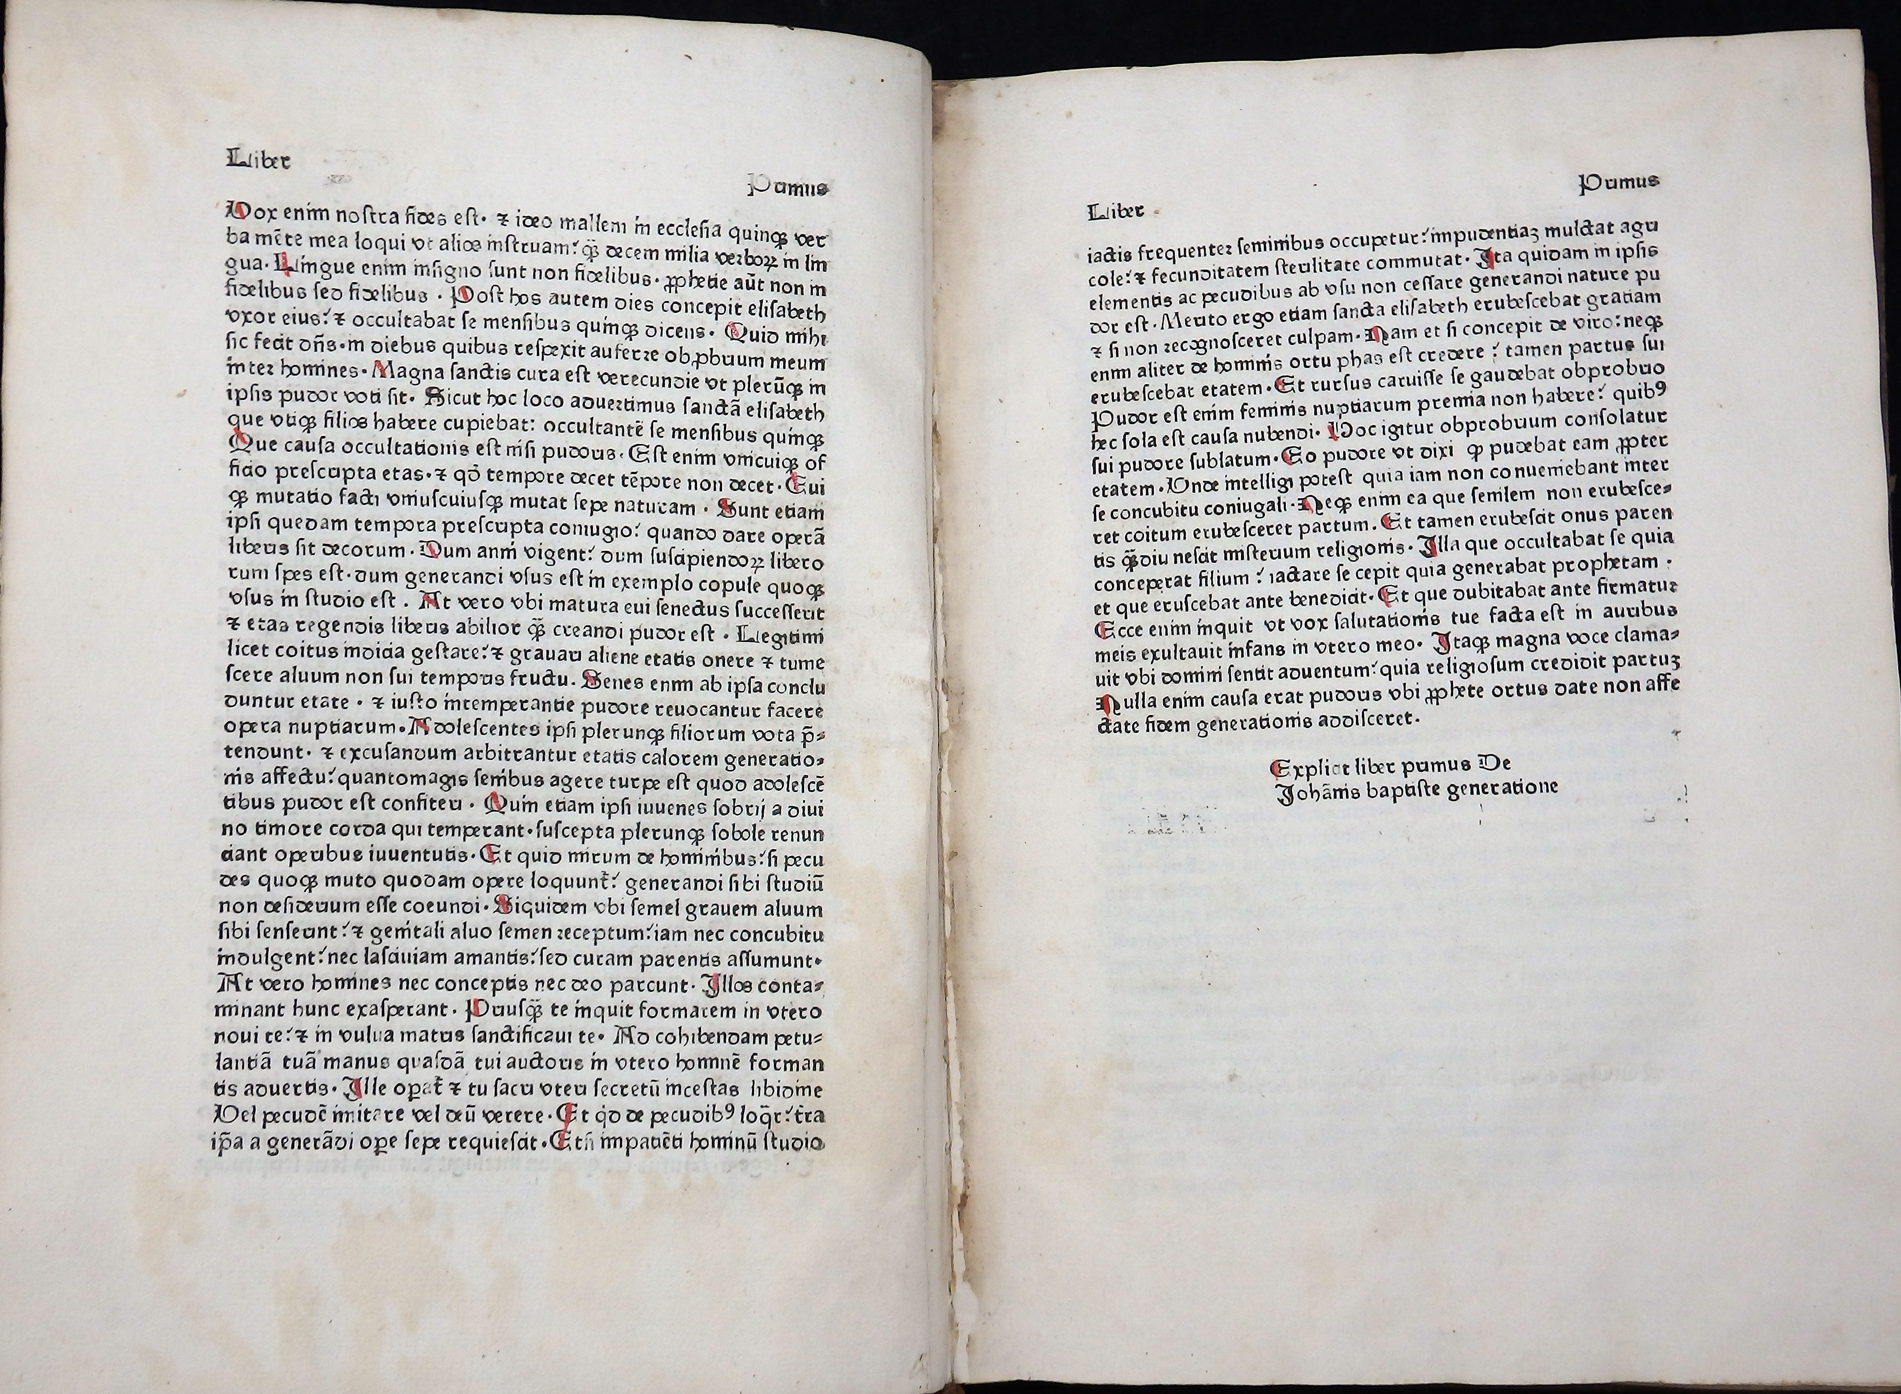 Liber
Primus
Vox enim nostra fides est· ⁊ ideo mallem in ecclesia quinqꝫ ver
ba mēte mea loqui vt alios instruam:' ꝗ̄ꝫ decem milia verborꝝ in lin
gua· Lingue enim insigno sunt non fidelibus· ꝓphetie aūt non in
fidelibus sed fidelibus · Post hos autem dies concepit elisabeth
vxor eius:' ⁊ occultabat se mensibus quinqꝫ dicens· Quid mihi
sic fecit dn̄s·in diebus quibus respexit auferre obꝓbrium meum
inter homines· Magna sanctis cura est verecundie vt plerūqꝫ in
ipsis pudor voti sit· Sicut hoc loco aduertimus sanctā elisabeth
que vtiqꝫ filios habere cupiebat: occultantē se mensibus quinqꝫ
Que causa occultationis est nisi pudoris· Est enim vnicuiqꝫ of
ficio prescripta etas·⁊ qō tempore decet tēpore non decet· Eui
qꝫ mutatio facti vniuscuiusqꝫ mutat sepe naturam · Sunt etiam
ipsi quedam tempora prescripta coniugio:' quando dare operā
liberis sit decorum· Dum anni vigent:' dum suscipiendorꝝ libero
rum spes est·dum generandi vsus est in exemplo copule quoqꝫ
vsus in studio est . At vero vbi matura eui senectus successerit
⁊ etas regendis liberis abilior ꝗ̄ꝫ creandi pudor est · Legitimi
licet coitus indicia gestare:' ⁊ grauari aliene etatis onere ⁊ tume
scere aluum non sui temporis fructu. Senes enm ab ipsa conclu
duntur etate · ⁊ iusto intemperantie pudore reuocantur facere
opera nuptiarum· Adolescentes ipsi plerunqꝫ filiorum vota p̄⸗
tendunt· ⁊ excusandum arbitrantur etatis calorem generatio⸗
nis affectu:' quantomagis senibus agere turpe est quod adolescē
tibus pudor est confiteri · Quin etiam ipsi iuuenes sobrij a diui
no timore corda qui temperant·suscepta plerunqꝫ sobole renun
ciant operibus iuuentutis· Et quid mirum de hominibus:' si pecu
des quoqꝫ muto quodam opere loquunt᷑:' generandi sibi studiū
non desiderium esse coeundi· Siquidem vbi semel grauem aluum
sibi senserint:' ⁊ genitali aluo semen receptum:' iam nec concubitu
indulgent:' nec lasciuiam amantis:' sed curam parentis assumunt·
At vero homines nec conceptis nec deo parcunt· Illos conta⸗
minant hunc exasperant· Priusꝗ̄ꝫ te inquit formarem in vtero
noui te:' ⁊ in vulua matris sanctificaui te· Ad cohibendam petu⸗
lantiā tuā manus quasdā tui auctoris in vtero hominē forman
tis aduertis· Ille oꝑat᷑ ⁊ tu sacri vteri secretū incestas libidine
Vel pecudē imitare vel deū verere· Et qd̄ de pecudibꝰ loq̄r:' t᷑ra
ip̄a a generādi oꝑe sepe requiescit· Etsi impatiēti hominū studio
Liber
Primus
iactis frequenter seminibus occupetur:' impudentiaꝫ mulctat agri
cole:' ⁊ fecunditatem sterilitate commutat· Ita quidam in ipsis
elementis ac pecudibus ab vsu non cessare generandi nature pu
dor est· Merito ergo etiam sancta elisabeth erubescebat gratiam
⁊ si non recognosceret culpam· Nam et si concepit de viro:neqꝫ
enm aliter de hominis ortu phas est credere:' tamen partus sui
erubescebat etatem· Et rursus caruisse se gaudebat obprobrio
Pudor est enim feminis nuptiarum premia non habere:' quibꝰ
hec sola est causa nubendi· Hoc igitur obprobrium consolatur
sui pudore sublatum· Eo pudore vt dixi ꝙ pudebat eam ꝓpter
etatem· Vnde intelligi potest quia iam non conueniebant inter
se concubitu coniugali· Neqꝫ enim ea que senilem non erubesce⸗
ret coitum erubesceret partum. Et tamen erubescit onus paren
tis ꝗ̄ꝫdiu nescit misterium religionis· Illa que occultabat se quia
conceperat filium:' iactare se cepit quia generabat prophetam ·
et que eruscebat ante benedicit· Et que dubitabat ante firmatur
Ecce enim inquit vt vox salutationis tue facta est in auribus
meis exultauit infans in vtero meo· Itaqꝫ magna voce clama⸗
uit vbi domini sentit aduentum:' quia religiosum credidit partuꝫ
Nulla enim causa erat pudoris vbi ꝓphete ortus date non affe
ctate fidem generationis addisceret·
Explicit liber primus De
Johānis baptiste generatione